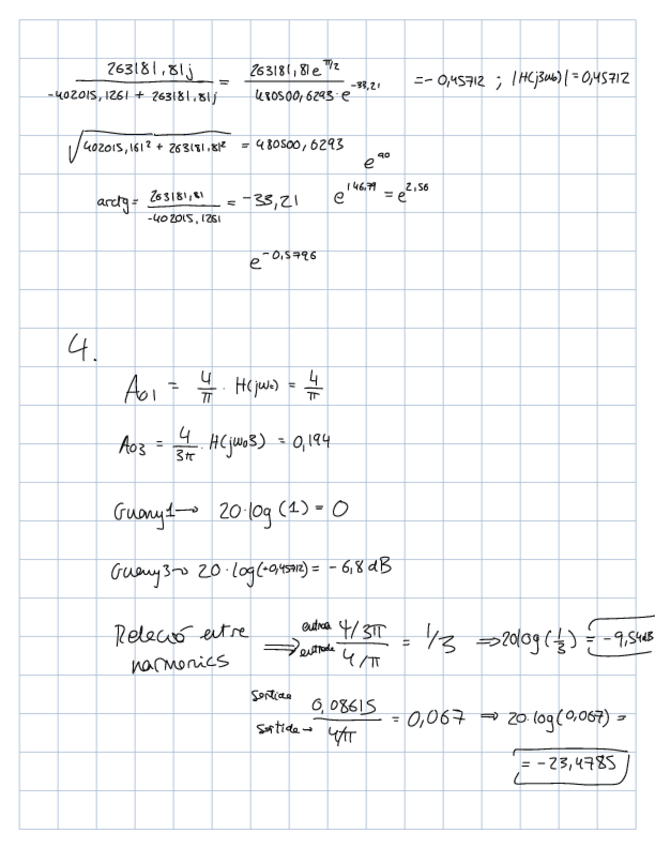 263181,81j / -402015,1261 + 263181,81j = 263181,81e^π/2 / 480500,6293·e^-33,21 = -0,45712 ; |H(j3ω0)| = 0,45712
√402015,161² + 263181,81² = 480500,6293
e^90
arctg = 263181,81 / -402015,1261 = -33,21 e^146,79 = e^2,56
e^-0,5796
4.
A01 = 4/π · H(jω0) = 4/π
A03 = 4/3π · H(jω03) = 0,194
Guany1 → 20·log(1) = 0
Guany3 → 20·log(-0,45712) = -6,8 dB
Relació entre harmonics ⇒ entrada entrada 4/3π / 4/π = 1/3 ⇒ 20log(1/3) = -9,54dB
Sortida Sortida → 0,08615 / 4/π = 0,067 ⇒ 20·log(0,067) =
= -23,4785